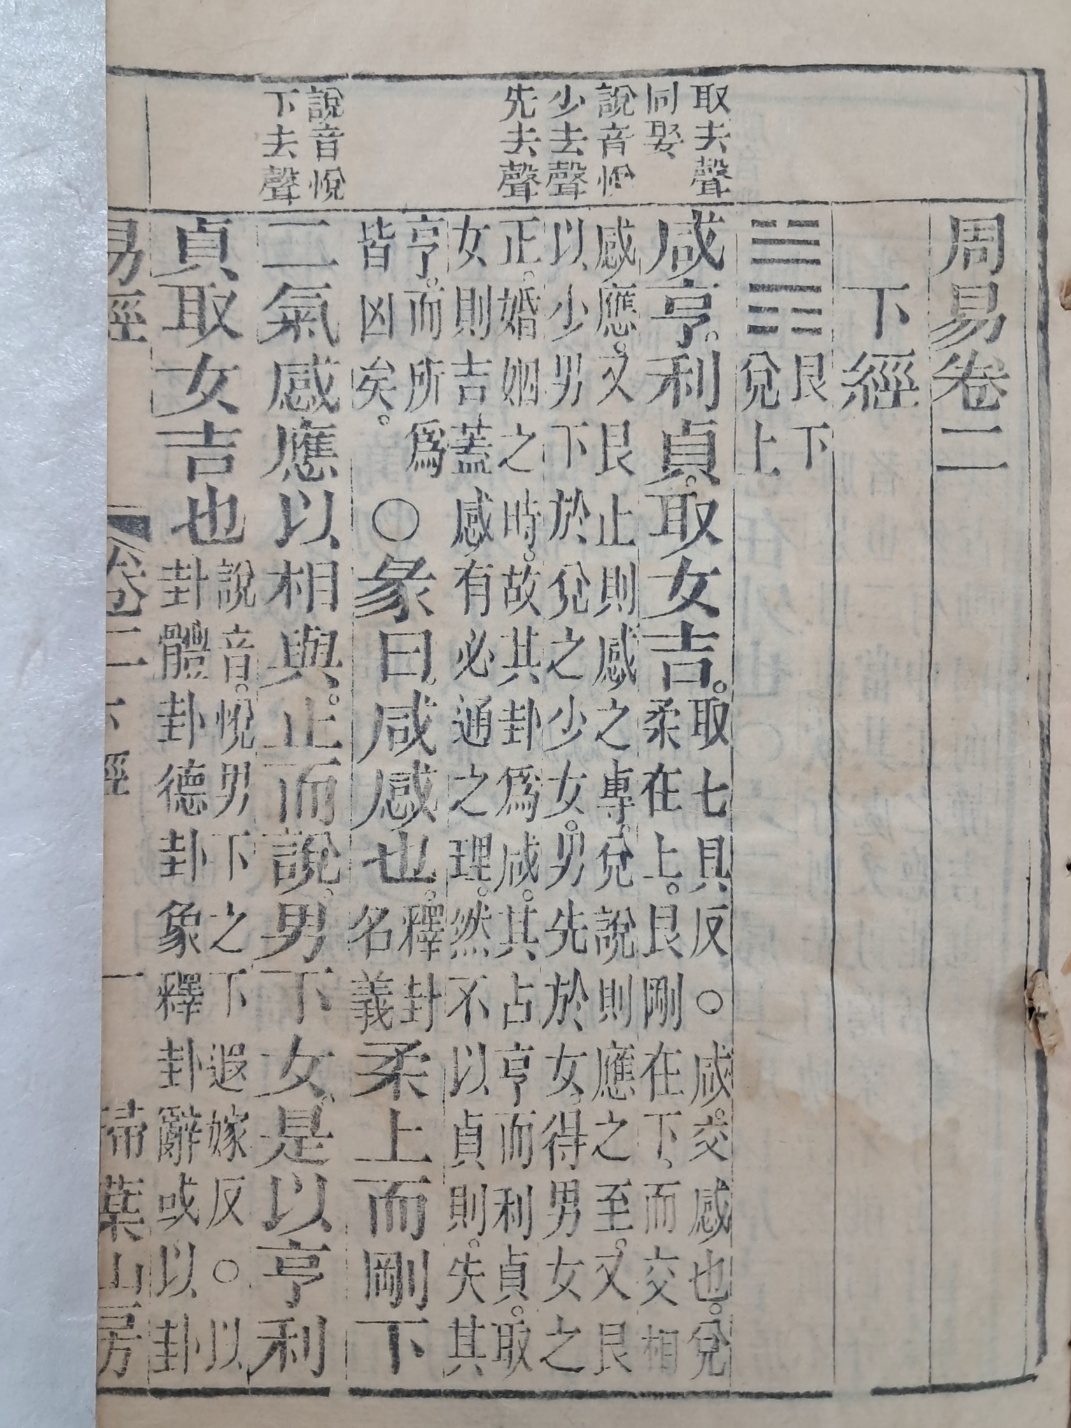 取去聲
同娶
說音悅
少去聲
先去聲
說音悅
下去聲
周易卷二
下經
䷞艮下
兌上
咸亨。利貞。取女吉。
取七具反○咸。交感也。兌
柔在上。艮剛在下、而交相
感應。又艮止則感之專、兌說則應之至。又艮
以少男下於兌之少女。男先於女。得男女之
正。婚姻之時。故其卦爲咸。其占亨而利貞。取
女則吉蓋感有必通之理。然不以貞則。失其
亨。而所爲
皆凶矣。
○彖曰咸感也。
釋卦
名義
柔上而剛下
二氣感應以相與。止而說、男下女、是以亨利
貞取女吉也
說音。悅男下之下遐嫁反。○以
卦體卦德卦象釋卦辭或以卦
易經
卷二下經
一
掃葉山房